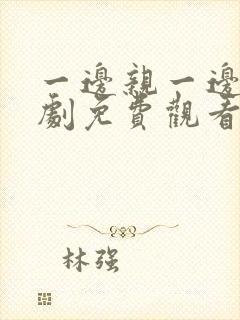 一邊親一邊
劇免費觀看
林强